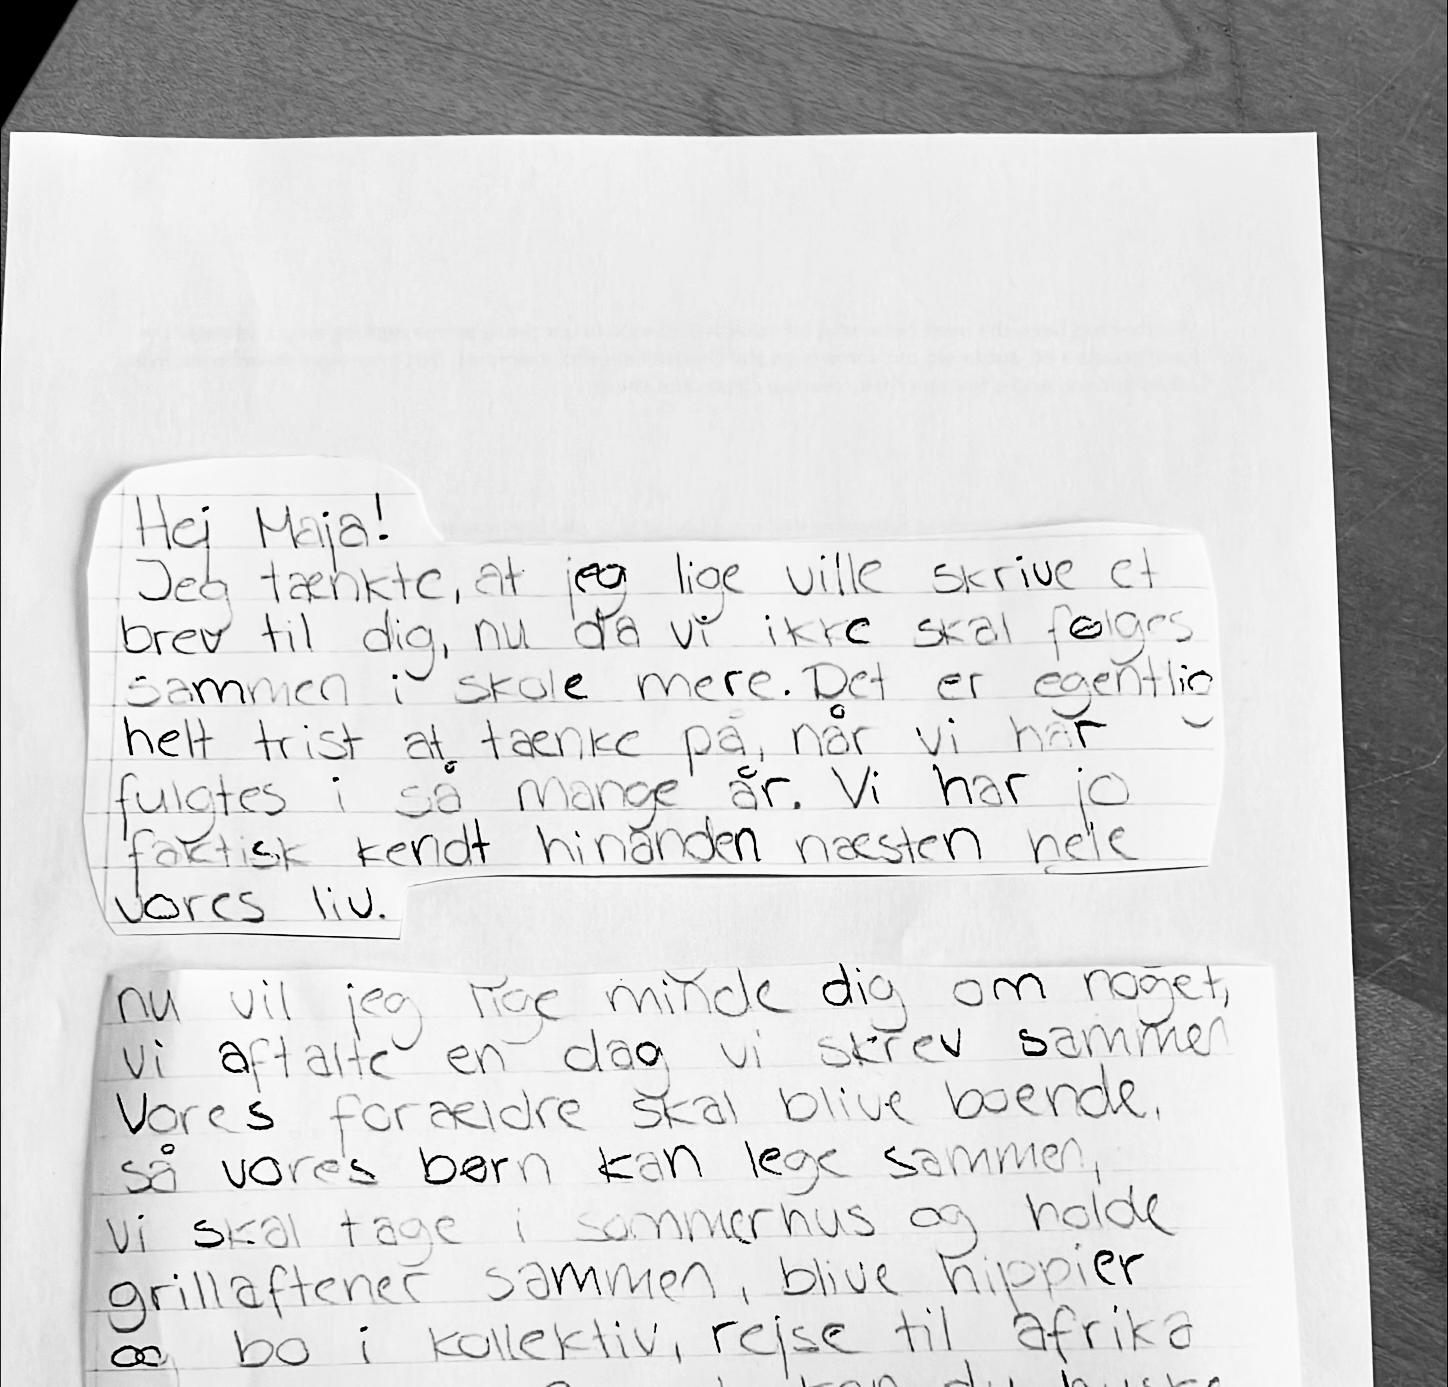 Hej Maja!
Jeg tænkte, at jeg lige ville skrive et
brev til dig, nu da vi ikke skal følges
sammen i skole mere. Det er egentlig
helt trist at tænke på, når vi har
fulgtes i så mange år. Vi har jo
faktisk kendt hinanden næsten hele
vores liv.
nu vil jeg lige minde dig om noget,
vi aftalte en dag vi skrev sammen
Vores forældre skal blive boende,
så vores børn kan lege sammen,
vi skal tage i sommerhus og holde
grillaftener sammen, blive hippier
og bo i kollektiv, rejse til afrika
kan du huske